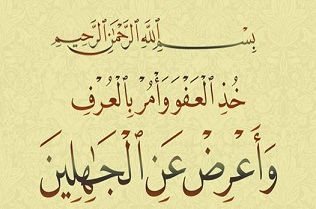 بِسْمِ اللَّهِ الرَّحْمَٰنِ الرَّحِيمِ
خُذِ الْعَفْوَ وَأْمُرْ بِالْعُرْفِ
وَأَعْرِضْ عَنِ الْجَٰهِلِينَ